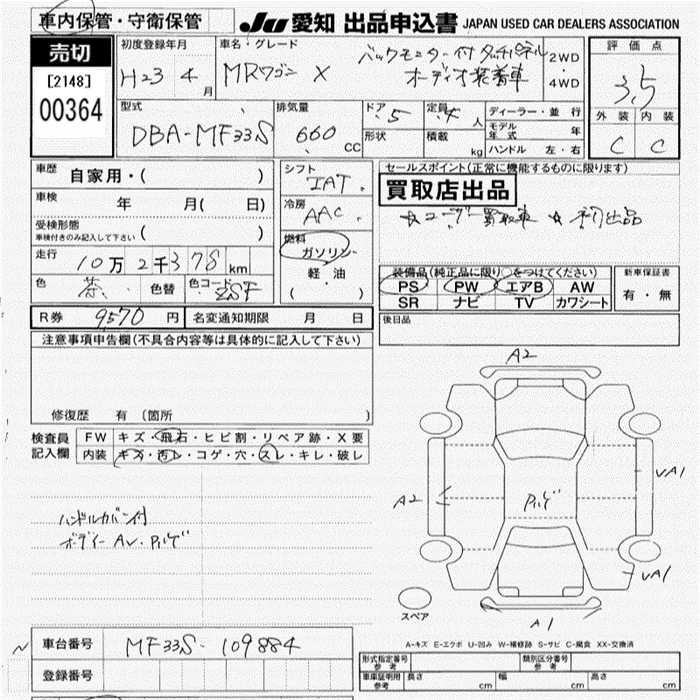 車内保管・守衛保管
JU 愛知 出品申込書 JAPAN USED CAR DEALERS ASSOCIATION
売切
[2148]
00364
初度登録年月
H23 4月
車名・グレード
MRワゴン X
バックモニター付タッチパネル
オーディオ装着車
2WD
・
4WD
評価点
3.5
外装 内装
C C
型式
DBA-MF33S
排気量
660 CC
ドア 5
形状
定員 4人
積載 kg
ディーラー・並行
モデル年式 年
ハンドル 左・右
車歴
自家用・( )
車検 年 月( 日)
受検形態
車検付きのみ記入して下さい ( )
走行
10万2千378km
色 茶 色替 色コード ZSF
シフト
IAT
冷房
AAC
燃料
ガソリン
軽・油
( )
セールスポイント(正常に機能するものに限ります)
買取店出品
☆ユーザー買取車 ☆初出品
装備品(純正品に限り○をつけてください)
PS PW エアB AW
SR ナビ TV カワシート
新車保証書
有・無
R券 9570円 名変通知期限 月 日
後日品
注意事項申告欄(不具合内容等は具体的に記入して下さい)
修復歴 有 (箇所 )
検査員
記入欄
FW キズ・飛石・ヒビ割・リペア跡・X要
内装 キズ・汚レ・コゲ・穴・スレ・キレ・破レ
ハンドルカバー付
ボディー AU・PUゲ
A2
A2
PUゲ
UA1
UA1
A1
スペア
A-キズ E-エクボ U-凹み W-補修跡 S-サビ C-腐食 XX-交換済
車台番号 MF33S-109884
登録番号
形式指定番号
参考
類別区分番号
参考
車庫証明用
参考
長さ cm 幅 cm 高さ cm